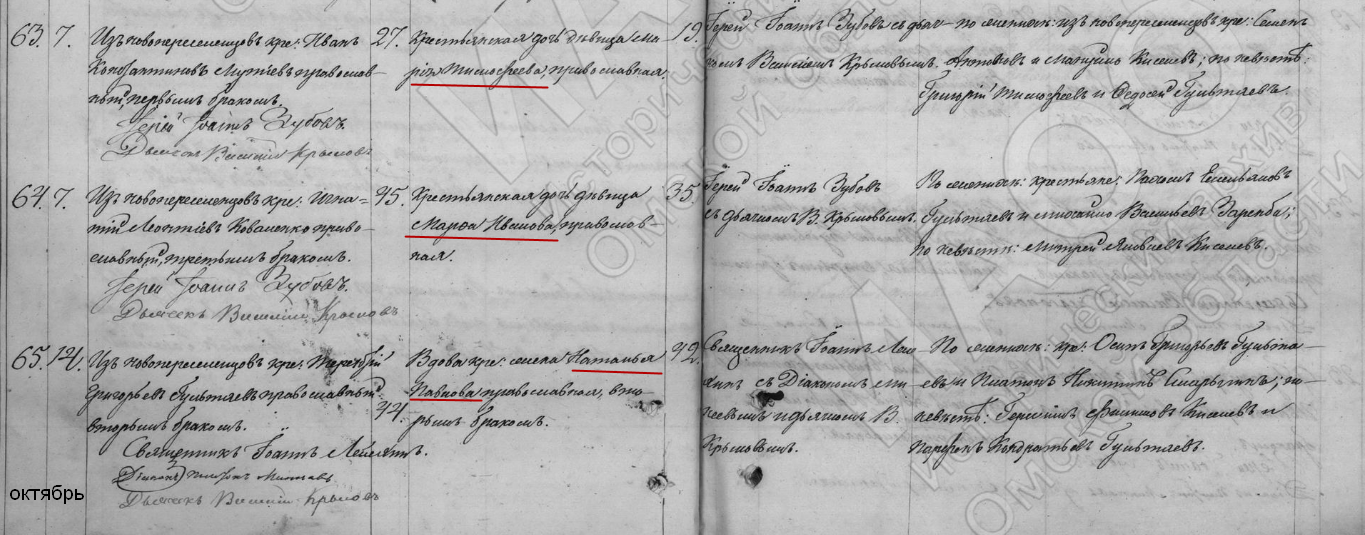 63. 7. Изъ новопереселенцовъ кре: Иванъ
Константиновъ православ-
ный, первымъ бракомъ.
Іерей Іоаннъ Зубовъ.
Дьячекъ Василій Крыловъ
27. Крестьянская дочь дѣвица Ма-
рія Тимофеева, православная.
19. Іерей Іоаннъ Зубовъ съ дьяч-
комъ Василіемъ Крыловымъ.
По женихѣ: изъ новопереселенцовъ кре: Семенъ
и Киселевъ; по невѣстѣ:
Григорій Тимофеевъ и Федосей Гультяевъ.
64. 7. Изъ новопереселенцовъ кре: Игна-
тій Леонтіевъ Коваленко право-
славный, третьимъ бракомъ.
Іерей Іоаннъ Зубовъ.
Дьячекъ Василій Крыловъ
45. Крестьянская дочь дѣвица
Марѳа Иванова, православ-
ная.
35. Іерей Іоаннъ Зубовъ
съ дьячкомъ В. Крыловымъ.
По женихѣ: крестьяне: Пахомъ Емельяновъ
Гультяевъ и Васильевъ
по невѣстѣ: Митрей Яковлевъ Киселевъ.
65. 14. Изъ новопереселенцовъ кре: Терентій
Григорьевъ Гультяевъ православный
вторымъ бракомъ.
Священникъ Іоаннъ
Діаконъ
Дьячекъ Василій Крыловъ
44.
Вдова кре: жена Наталья
Павлова православная, вто-
рымъ бракомъ.
42. Священникъ Іоаннъ
съ Діакономъ
и дьячкомъ В.
Крыловымъ.
По женихѣ: кре: Осипъ Григорьевъ Гультя-
евъ и Платонъ Никитинъ по
невѣстѣ: Герасимъ Филиповъ Киселевъ и
Парфенъ Кондратьевъ Гультяевъ.
октябрь